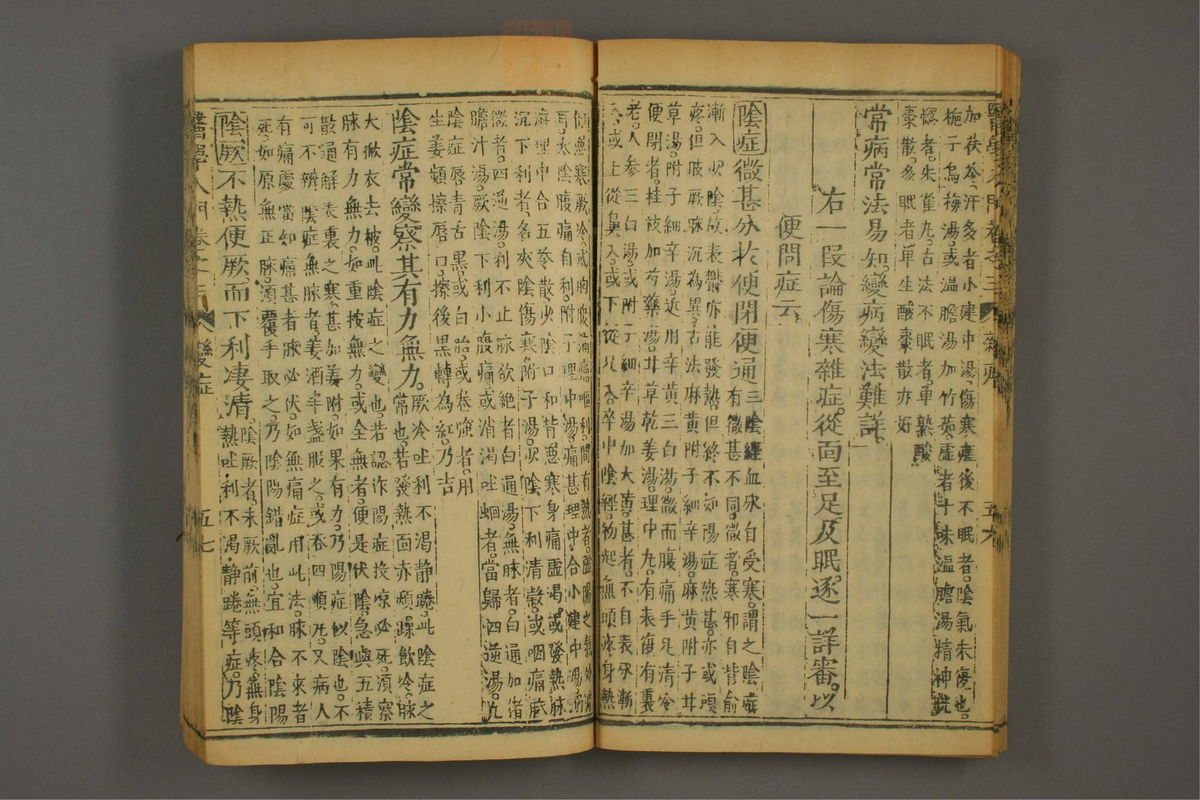 醫學入門卷之三 雜症 五六
加茯苓。汗多者小建中湯。傷寒瘥後不眠者。陰氣未復也。
梔子烏梅湯。或溫膽湯加竹茹。虛者十味溫膽湯。精神恍
惚者。朱雀丸。古法不眠者。單熟酸
棗散。多眠者單生酸棗散亦好
常病常法易知。變病變法難詳。
右一段論傷寒雜症。從面至足及眠。逐一詳審。以
便問症云
陰症微甚分於便閉便通
三陰經血分自受寒。謂之陰症
有微甚不同。微者。寒邪自背俞
漸入少陰。故表熱亦能發熱。但終不如陽症熱甚。亦或頭
疼。但肢厥脉沉為異。古法麻黃附子細辛湯。麻黃附子甘
草湯。附子細辛湯。近用辛黃三白湯。微而腹痛手足清冷
便閉者。桂枝加芍藥湯。甘草乾姜湯。理中丸。有表復有裏
老。人參三白湯。或附子細辛湯加大黃。甚者。不自表分漸
入。或上從鼻入。或下從足入。卒中陰經。物起無頭疼身熱
惡寒厥冷。或胸腹嘔利。間有熱者。虛陽之氣外
耳。太陰腹痛自利。附子理中湯。痛甚理中合小建中湯。
理中合五苓散。少陰口和背惡寒身痛虛渴。或發熱脉
沉下利者。名夾陰傷寒。附子湯。少陰下利清穀。或咽痛厥
微者。四逆湯。利不止脉欲絕者白通湯。無脉者。白通加猪
膽汁湯。厥陰下利小腹痛。或消渴吐蛔者。當歸四逆湯。凡
陰症唇青舌黑。或白胎。或卷強者。用
生姜頻擦唇口。擦後黑轉為紅。乃吉
陰症常變察其有力無力。
厥冷吐利不渴静踡。此陰症之
常也。若發熱面赤煩躁飲冷。脉
大揭衣去被。此陰症之變也。若認作陽症投凉必死。須察
脉有力無力。如重按無力。或全無者。便是伏陰。急與五積
散通解表裏之寒。甚加姜附。如果有力。乃陽症似陰也。不
可不辨。陰症無脉者。姜酒半盞服之。或吞四順丸。又病人
有痛處。當知痛甚者脉必伏。如無痛症。用此法。脉不來者
死。如原無正脉。須覆手取之。乃陰陽錯亂也。宜和合陰陽
陰厥不熱便厥而下利凄清。
陰厥者。未厥前。無頭疼。無身
熱。吐利不渴。静踡等症。乃陰
醫學入門卷之三 變症 五七